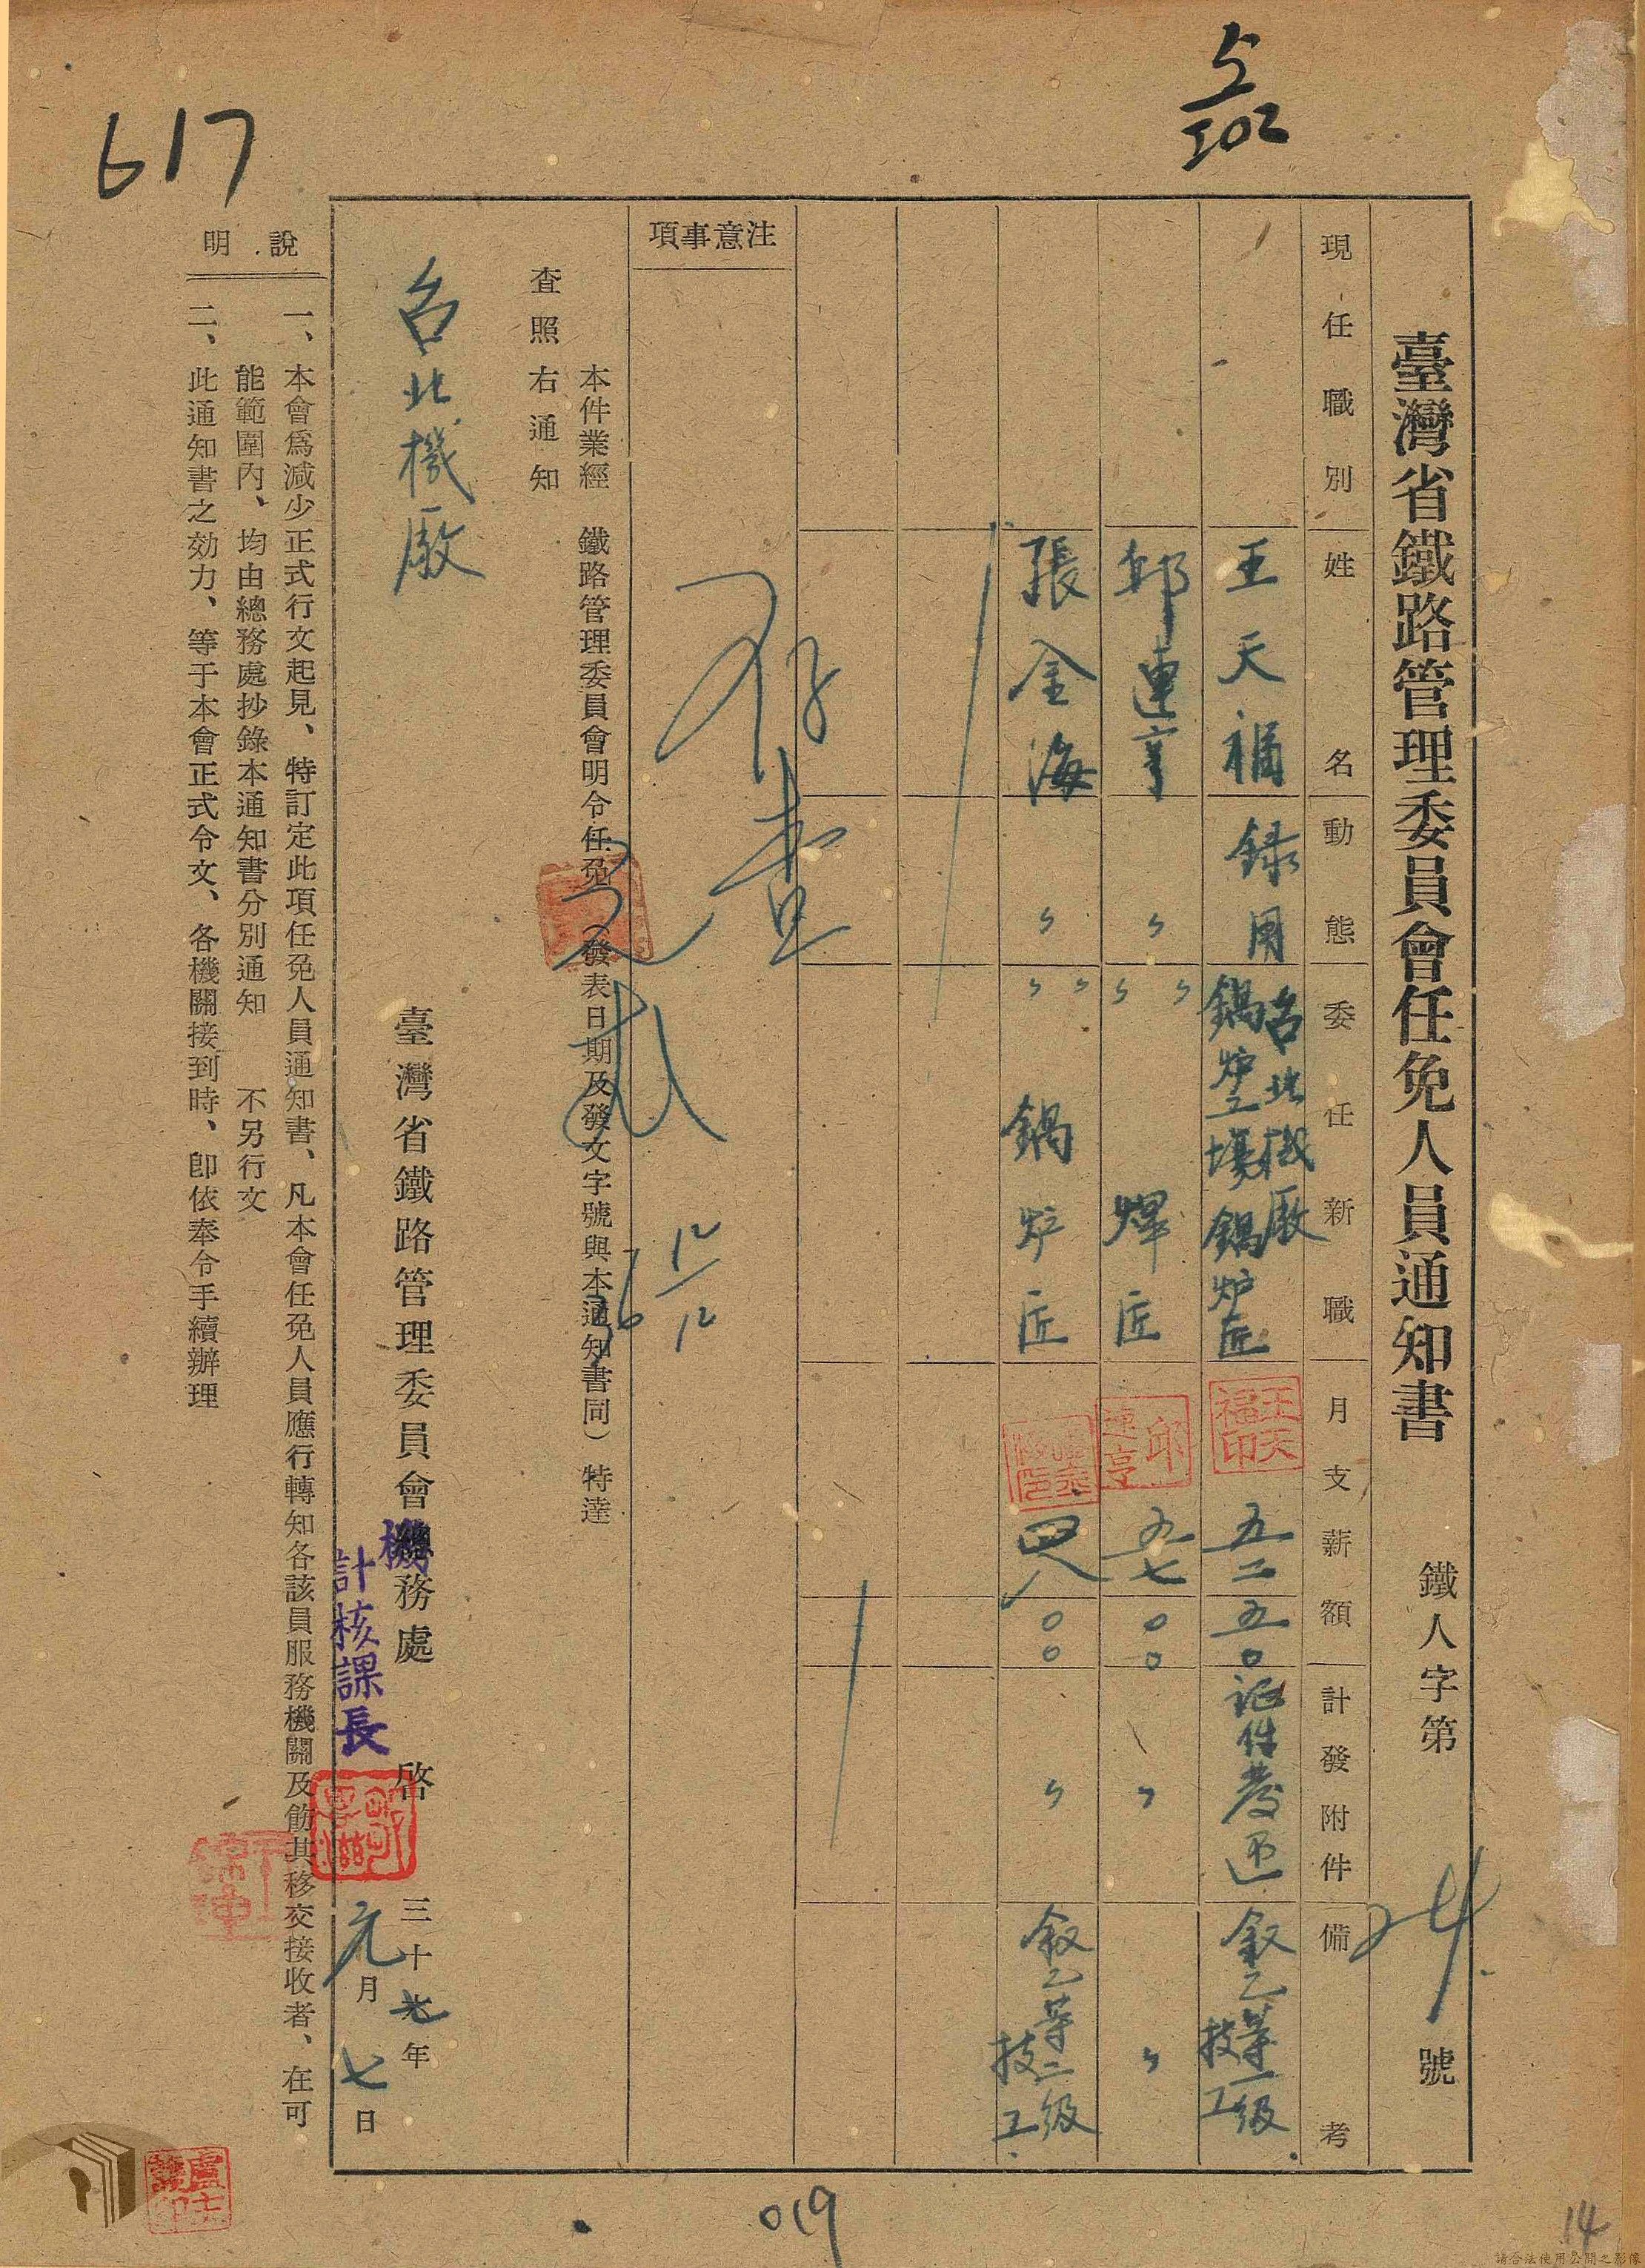 臺灣省鐵路管理委員會任免人員通知書
鐵人字第 24 號
現任職別 姓名 動態 委任新職 月支薪額 計發附件 備考
王天福 錄用 台北機廠鍋炉工場鍋炉匠 五二 五〇 証件發还 敘乙等一級技工
邱連亨 〃 〃 〃 焊匠 五七 〇〇 〃 〃
張金海 〃 〃 〃 鍋炉匠 四八 〇〇 〃 敘乙等二級技工
注意事項
存查
12/12
36
本件業經 鐵路管理委員會明令任免(發表日期及發文字號與本通知書同) 特達
查照右通知
台北機廠
臺灣省鐵路管理委員會總務處 啓
機
計核課長
三十七年
元月七日
說明
一、本會爲減少正式行文起見、特訂定此項任免人員通知書、凡本會任免人員應行轉知各該員服務機關及飭其移交接收者、在可
能範圍內、均由總務處抄錄本通知書分別通知 不另行文
二、此通知書之効力、等于本會正式令文、各機關接到時、卽依奉令手續辦理
王天福印
邱連亨印
617
5/202
019
14
請合法使用公開之影像